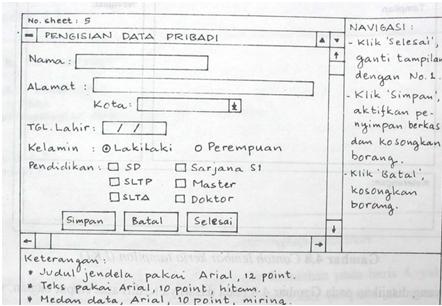 No. sheet : 5
PENGISIAN DATA PRIBADI
Nama :
ALamat :
Kota :
TGL. Lahir : / /
Kelamin : Lakilaki Perempuan
Pendidikan : SD Sarjana S1
SLTP Master
SLTA Doktor
Simpan Batal Selesai
NAVIGASI :
- Klik 'Selesai',
ganti tampilan
dengan No. 1.
- Klik 'Simpan',
aktifkan pe-
nyimpan berkas
dan kosongkan
borang.
- Klik 'Batal',
kosongkan
borang.
Keterangan :
* Judul jendela pakai Arial, 12 point.
* Teks pakai Arial, 10 point, hitam.
* Medan data, Arial, 10 point, miring.